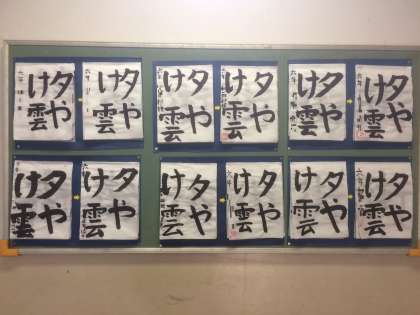 夕や
け雲
六年
夕や
け雲
六年
夕や
け雲
夕や
け雲
夕や
け雲
六年
夕や
け雲
六年
夕や
け雲
夕や
け雲
六年
夕や
け雲
夕や
け雲
六年
夕や
け雲
夕や
け雲
六年